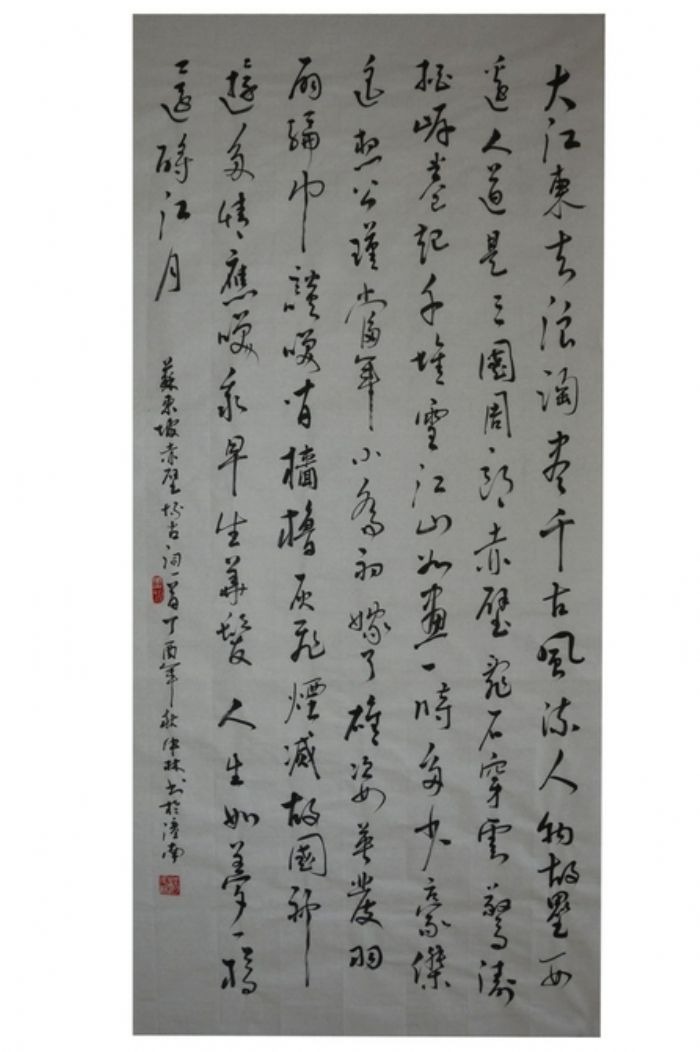 大江東去浪淘盡千古風流人物故壘西
邊人道是三國周郎赤壁亂石穿雲驚濤
拍岸卷起千堆雪江山如畫一時多少豪傑
遙想公瑾當年小喬初嫁了雄姿英發羽
扇綸巾談笑間檣櫓灰飛煙滅故國神
遊多情應笑我早生華髮人生如夢一樽
還酹江月
蘇東坡赤壁怀古詞一首丁酉年秋林书於潼南